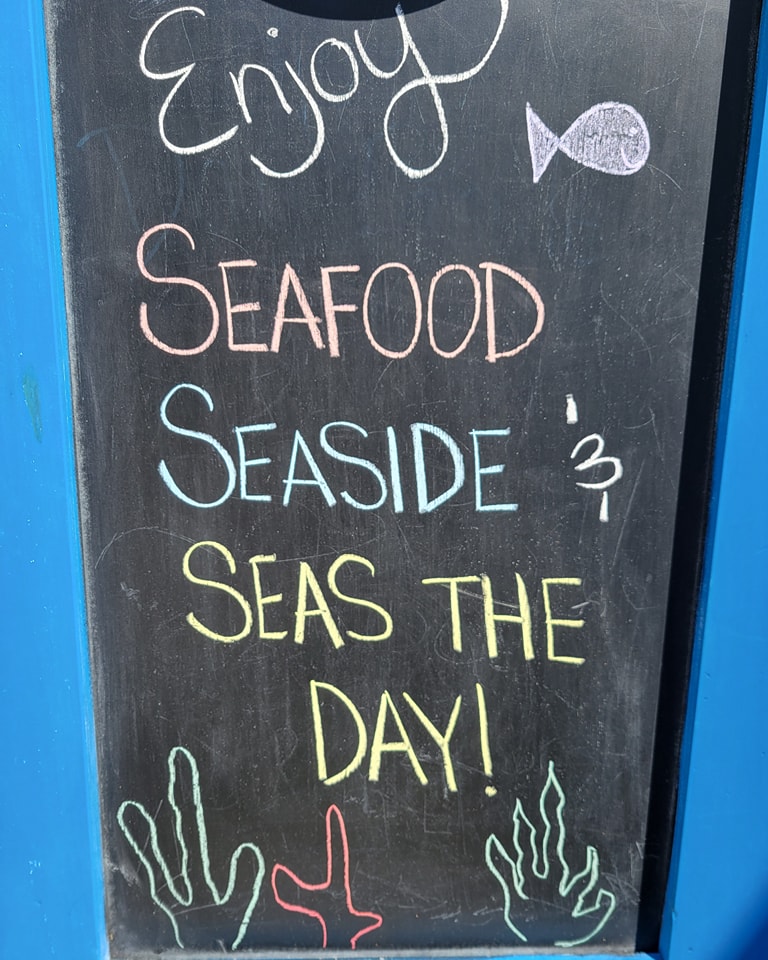 Enjoy
SEAFOOD
SEASIDE &
SEAS THE
DAY!